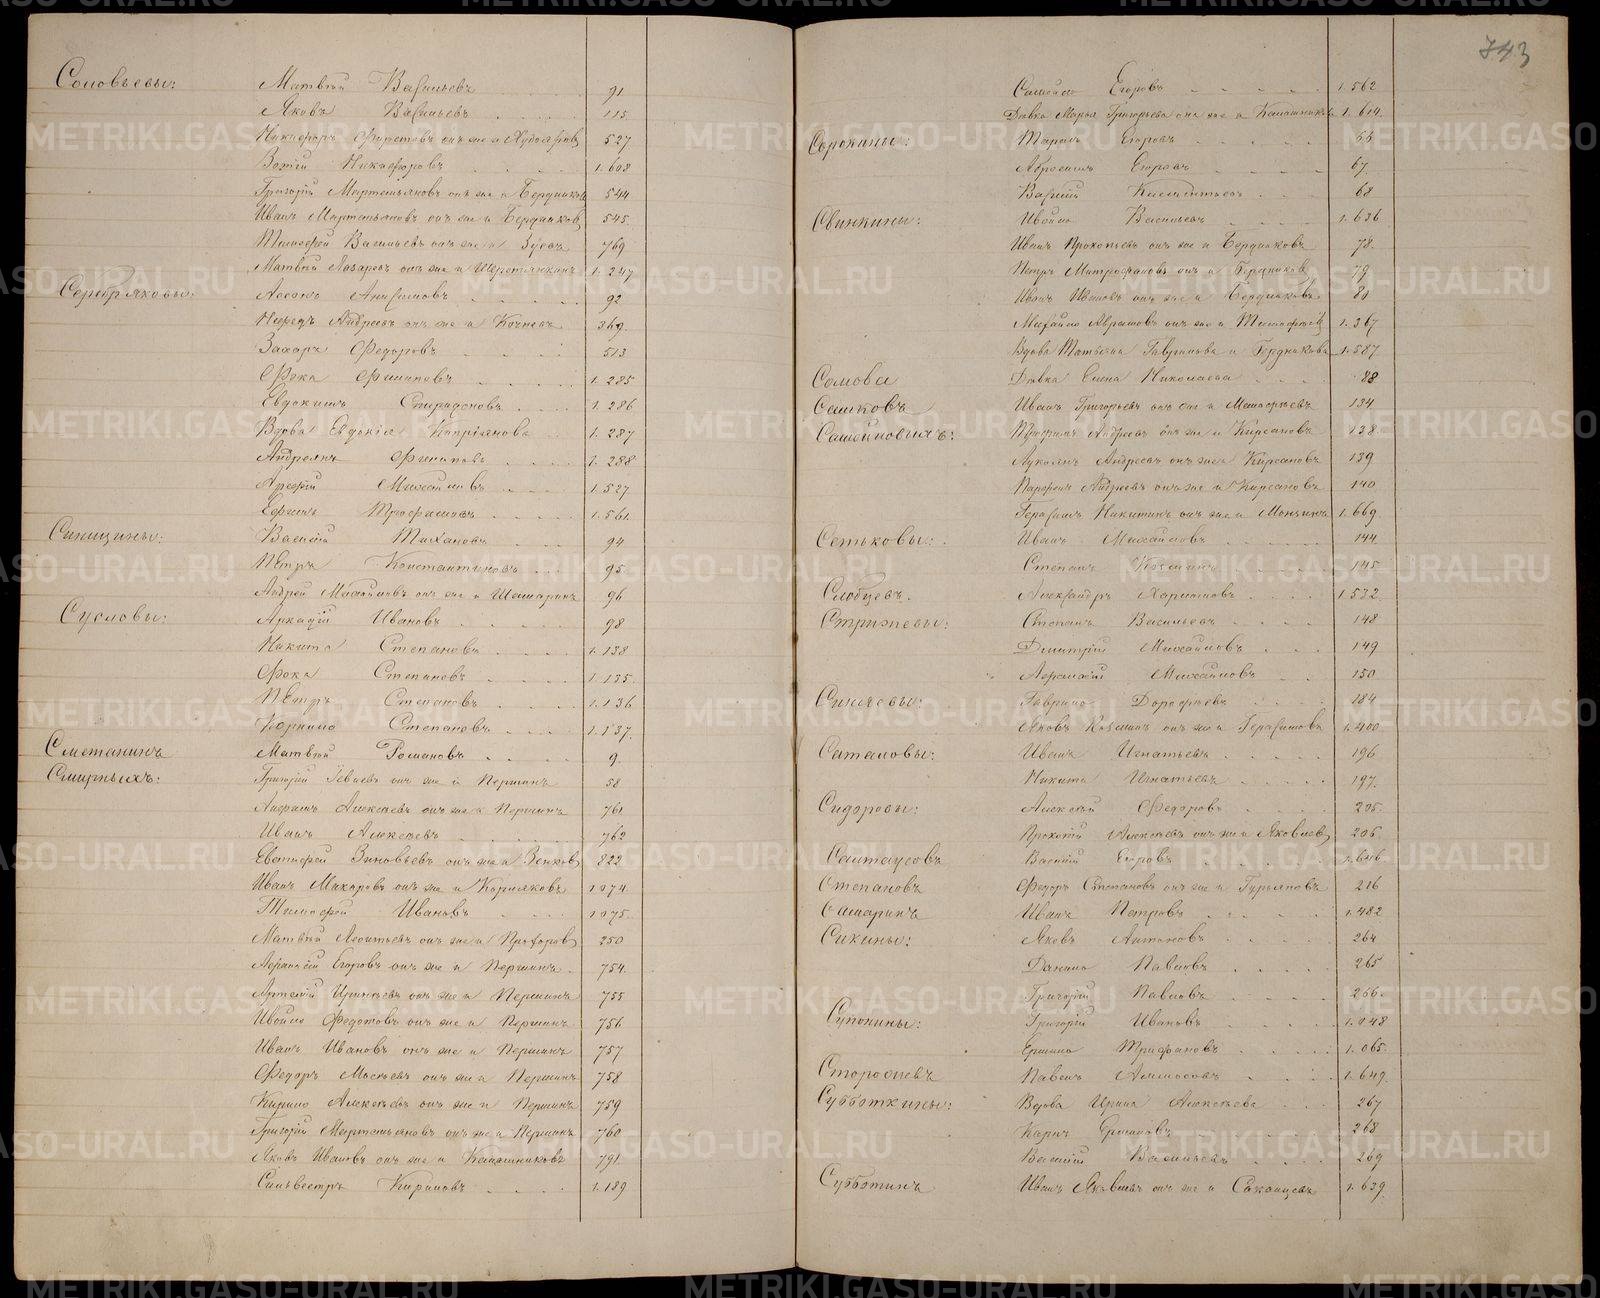 743
Соловьевы: Матвѣй Васильевъ 91
Яковъ Васильевъ 115
Никифоръ онъ же и 527
Никифоровъ 1.608
Григорій Мартемьяновъ онъ же и Бердников 544
Иванъ Мартемьяновъ онъ же и Бердников 545
Тимофей Васильевъ онъ же и Зуевъ 769
Матвѣй Лазаревъ онъ же и Шерстянкинъ 1.247
Серебряковы: Анисимовъ 92
Андреевъ онъ же и Кочневъ 369
Захаръ Федоровъ 513
Фока Филиповъ 1.285
Евдокимъ Спиридоновъ 1.286
Вдова Евдокія Кипріянова 1.287
Андреянъ Филиповъ 1.288
Арефій Михайловъ 1.527
Ефимъ Трофимовъ 1.561
Синицины: Василій Тихановъ 94
Петръ Константиновъ 95
Андрей Михайловъ онъ же и Шамаринъ 96
Сусловы: Аркадій Ивановъ 98
Никита Степановъ 1.138
Фока Степановъ 1.135
Петръ Степановъ 1.136
Корнило Степановъ 1.137
Сметанинъ Матвѣй Романовъ 9
Смирныхъ: Григорій онъ же и Першинъ 58
Алексѣевъ онъ же и Першинъ 761
Иванъ Алексѣевъ 762
Евтифей Зиновьевъ онъ же и Зенков 822
Иванъ Макаровъ онъ же и Корняковъ 1074
Тимофей Ивановъ 1075
Матвѣй Леонтьевъ онъ же и Прохоров 250
Егоровъ онъ же и Першинъ 754
Артемій онъ же и Першинъ 755
Федотовъ онъ же и Першинъ 756
Иванъ Ивановъ онъ же и Першинъ 757
Федоръ онъ же и Першинъ 758
Кирило Алексѣевъ онъ же и Першинъ 759
Григорій Мартемьяновъ онъ же и Першинъ 760
Яковъ Ивановъ онъ же и Калашниковъ 791
Сильвестръ Кириловъ 1.189
Самойло Егоровъ 1.562
Дѣвка Марья Григорьева она же и Калашников 1.614
Сорокины: Тарасъ Егоровъ 66
Абросимъ Егоровъ 67
Василій 68
Свинкины: Васильевъ 1.636
Иванъ Прокопьевъ онъ же и Бердниковъ 78
Петръ Митрофановъ онъ и Бердников 79
Иванъ Ивановъ онъ же и Бердниковъ 80
Михайло Абрамовъ онъ же и 1.367
Вдова Татьяна Гаврилова и Бердникова 1.587
Сомова Дѣвка Елена Николаева 88
Сашковъ Иванъ Григорьевъ онъ же и 134
Самойловыхъ: Андреевъ онъ же и Кирсановъ 138
Лукоянъ Андреевъ онъ же и Кирсановъ 139
Парфенъ Андреевъ онъ же и Кирсановъ 140
Герасимъ Никитинъ онъ же и 1.669
Сетьковы: Иванъ Михайловъ 144
Степанъ Козминъ 145
Слобцевъ. Александръ Харитоновъ 1.532
Стрижевы: Степанъ Васильевъ 148
Дмитрій Михайловъ 149
Михайловъ 150
Силяевы: Гаврило Дорофѣевъ 184
Яковъ Козминъ онъ же и Герасимова 1.400
Саталовы: Иванъ Игнатьевъ 196
Никита Игнатьевъ 197
Сидоровы: Алексѣй Федоровъ 205
Алексѣевъ онъ же и Яковлев 206
Салтаусовъ Василій Егоровъ 1.646
Степановъ Федоръ Степановъ онъ же и Гурьяновъ 216
Самаринъ Иванъ Петровъ 1.482
Сикины: Яковъ Антоновъ 264
Данило Павловъ 265
Григорій Павловъ 266
Супонины: Григорій Ивановъ 1.048
Ермило Трифановъ 1.065
Павелъ 1.649
Субботкины: Вдова Ирина Алексѣева 267
Карпъ Ермиловъ 268
Василій Васильевъ 269
Субботинъ Иванъ Яковлевъ онъ же и 1.639